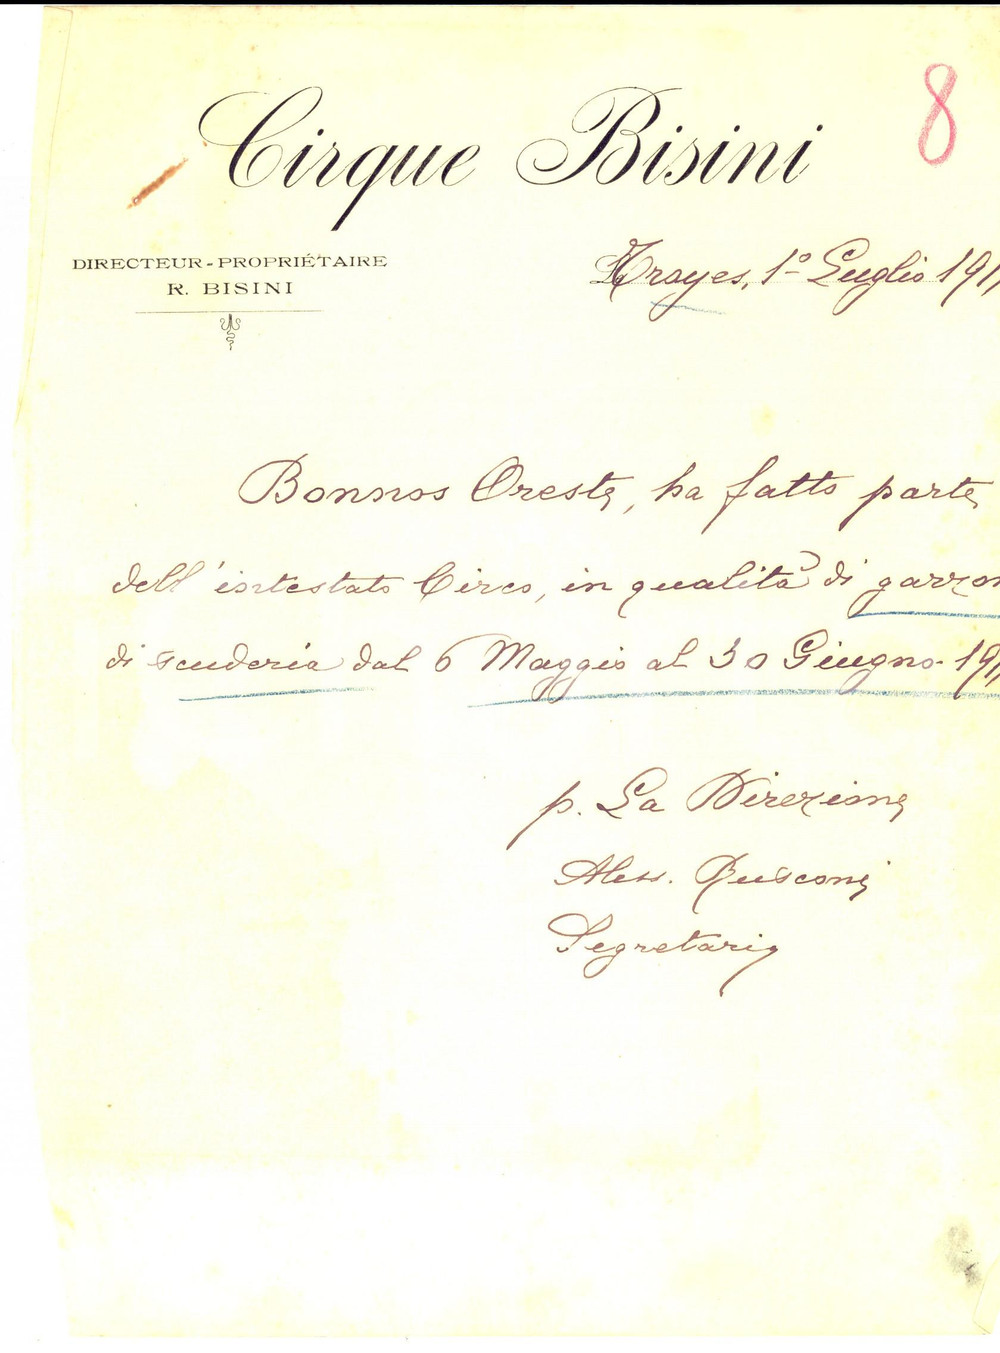 8
Cirque Bisini
DIRECTEUR-PROPRIÉTAIRE
R. BISINI
Troyes, 1º Luglio 191
Bonnos Oreste, ha fatto parte
dell'intestato Circo, in qualità di garzon
di scuderia dal 6 Maggio al 30 Giugno 191
p. La Direzione
Aless. Rusconi
Segretario